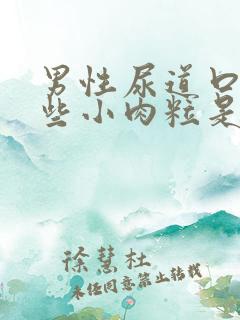 男性尿道口
些小肉粒是
徐慧杜
未经同意禁止转载